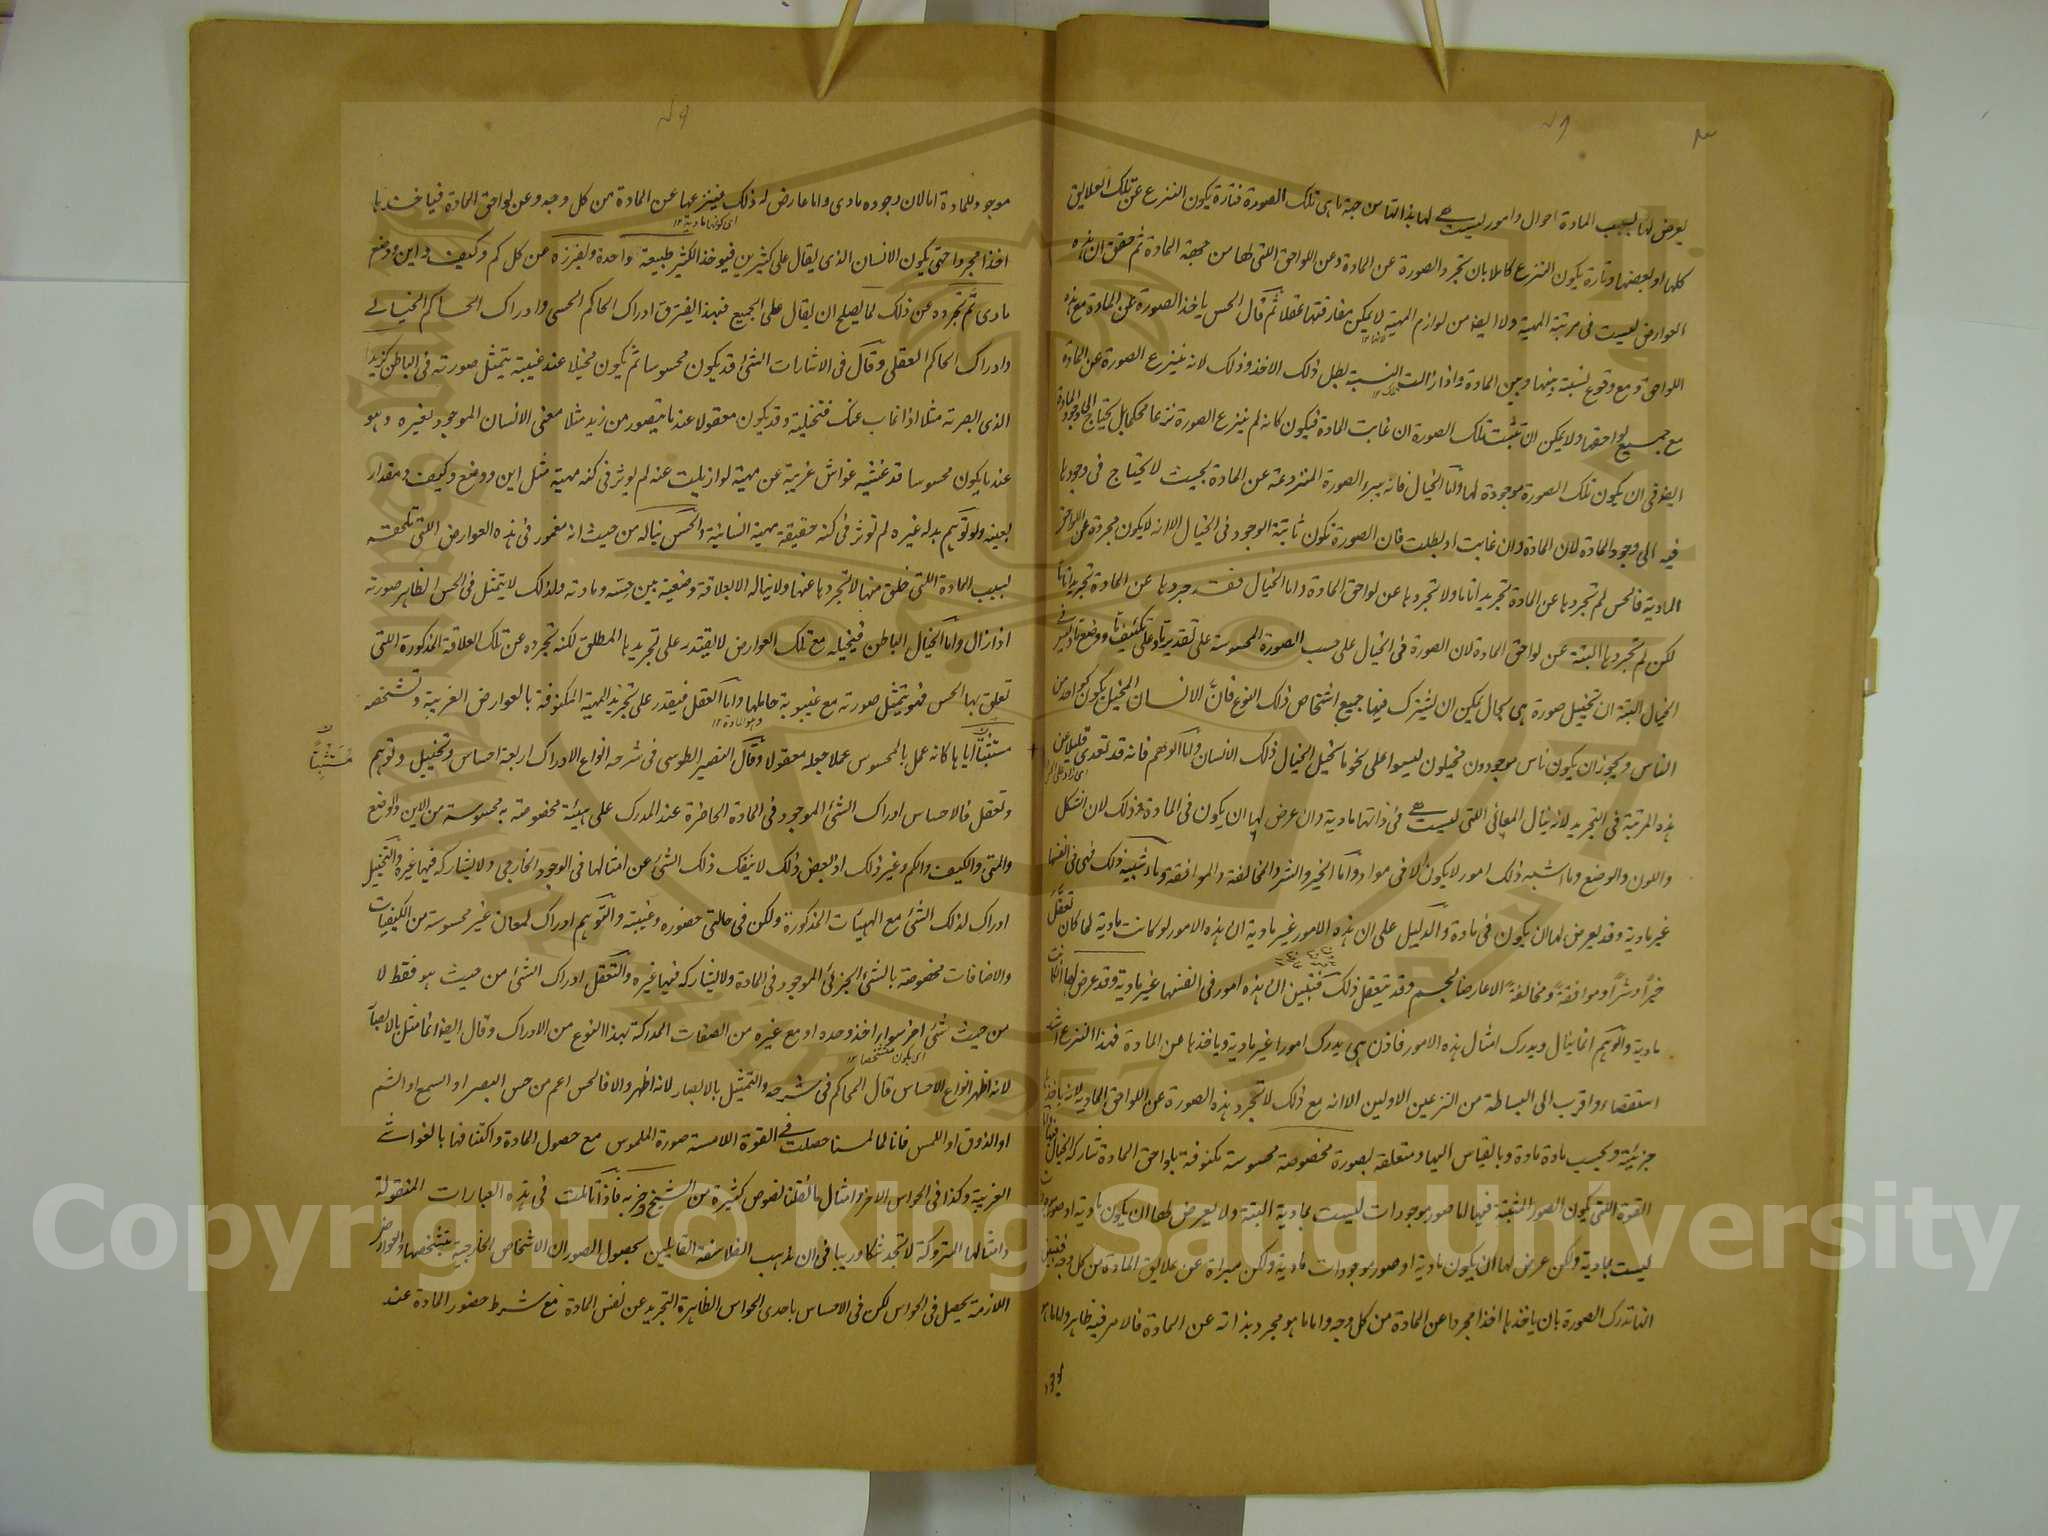 يعرض لها بسبب المادة احوال وامور ليست هى لها بذاتها من جهة ما هى تلك الصورة فتارة يكون النزع عن تلك العلايق
كلها او بعضها وتارة يكون النزع كاملا بان تجرد الصورة عن المادة وعن اللواحق اللتى لها من جهة المادة ثم حقق ان هذه
العوارض ليست فى مرتبة المهية ولا ايضا من لوازم المهية لا يمكن مفارقتها عقلا ثم قال الحس ياخذ الصورة عن المادة مع هذه
اللواحق ومع وقوع نسبة بينها وبين المادة واذا زالت النسبة بطل ذلك الاخذ وذلك لانه ينزع الصورة عن المادة
مع جميع لواحقها ولا يمكن ان تثبت تلك الصورة ان غابت المادة فيكون كانه لم ينزع الصورة نزعا محكما بل يحتاج الى وجود المادة
ايضا فى ان يكون تلك الصورة موجودة لها واما الخيال فانه يبرء الصورة المنزوعة عن المادة بحيث لا يحتاج فى وجودها
فيه الى وجود المادة لان المادة وان غابت او بطلت فان الصورة تكون ثابتة الوجود فى الخيال الا انه لا يكون مجردة عن اللواحق
المادية فالحس لم تجردها عن المادة تجريدا تاما ولا تجردها عن لواحق المادة واما الخيال فقد جردها عن المادة تجريدا تاما
لكن لم تجردها البتة عن لواحق المادة لان الصورة فى الخيال على حسب الصورة المحسوسة على تقدير ما وعلى تكييف ما ووضع ما وليس فى
الخيال البتة ان تخييل صورة هى بحال يمكن ان يشترك فيها جميع اشخاص ذلك النوع فان الانسان المخيل يكون كواحد من
الناس ويجوز ان يكون ناس موجودون مخيلون ليسوا على نحو ما تخيل الخيال ذلك الانسان واما الوهم فانه قد تعدى قليلا عن
هذه المرتبة فى التجريد لانه ينال المعانى اللتى ليست هى فى ذاتها مادية وان عرض لها ان يكون فى المادة وذلك لان الشكل
واللون والوضع وما اشبه ذلك امور لا يكون الا فى مواد واما الخير والشر والمخالفة والموافقة وما اشبه ذلك فهى فى انفسها
غير مادية وقد يعرض لها ان يكون فى مادة والدليل على ان هذه الامور غير مادية ان هذه الامور لو كانت مادية لما كان تعقل
خيرا وشرا وموافقة ومخالفة الا عارضا لجسم وقد يتعقل ذلك فتبين ان هذه امور فى انفسها غير مادية وقد عرض لها ان كانت
مادية والوهم انما ينال ويدرك امثال هذه الامور فاذن هى يدرك امورا غير مادية وياخذها عن المادة فهذا النزع اشد
استقصاء واقرب الى البساطة من النزعين الاولين الا انه مع ذلك لا تجرد هذه الصورة عن اللواحق المادية لانه ياخذها
جزئية وبحسب مادة مادة وبالقياس اليها ومتعلقة بصورة مخصوصة محسوسة مكنوفة بلواحق المادة تشاركه الخيال فيها
القوة اللتى يكون الصور المثبتة فيها اما صور موجودات ليست بمادية البتة ولا يعرض لها ان يكون مادية او صور
ليست مادية ولكن عرض لها ان يكون مادية او صور موجودات مادية ولكن مبراة عن علايق المادة من كل وجه فتبين
انها تدرك الصورة بان ياخذها اخذا مجردا عن المادة من كل وجه واما ما هو مجرد بذاته عن المادة فالامر فيه ظاهر واما ما هو
موجود للمادة اما لان وجوده مادى واما عارض له ذلك فينزعها عن المادة من كل وجه وعن لواحق المادة فياخذها
اى كونها مادية ١٢
اخذا مجردا حتى يكون الانسان الذى يقال على كثيرين فيوخذ الكثير طبيعة واحدة ويفرزه عن كل كم وكيف واين ووضع
مادى ثم تجرده عن ذلك لما يصلح ان يقال على الجميع فبهذا يفترق ادراك الحاكم الحسى وادراك الحاكم الخيالى
وادراك الحاكم العقلى وقال فى الاشارات الشئ قد يكون محسوسا ثم يكون مخيلا عند غيبته يتمثل صورته فى الباطن كزيد
الذى ابصرته مثلا اذا غاب عنك فتخيلته وقد يكون معقولا عندما يتصور من زيد مثلا معنى الانسان الموجود لغيره وهو
عندما يكون محسوسا قد غشيه غواش غريبة عن مهية لو ازيلت عنه لم يوثر فى كنه مهية مثل اين ووضع وكيف ومقدار
بعينه ولو توهم بدله غيره لم توثر فى كنه حقيقة مهية انسانية والحس يناله من حيث انه مغمور فى هذه العوارض اللتى تلحقه
بسبب المادة اللتى خلق منها لا تجردها عنها ولا يناله الا بعلاقة وضعية بين حسه ومادته ولذلك لا يتمثل فى الحس الظاهر صورته
اذا زال واما الخيال الباطن فيخيله مع تلك العوارض لا يقتدر على تجريدها المطلق لكنه تجرده عن تلك العلاقة المذكورة اللتى
تعلق بها الحس فهو يتمثل صورته مع غيبوبة حاملها واما العقل فيقدر على تجريد المهية المكنوفة بالعوارض الغريبة وتشخصه
وهو المادة ١٢
مستثبتا اياها كانه عمل بالمحسوس عملا جعله معقولا وقال النصير الطوسى فى شرحه انواع الادراك اربعة احساس وتخييل وتوهم
وتعقل فالاحساس ادراك الشئ الموجود فى المادة الحاضرة عند المدرك على هيئة مخصوصة به محسوسة من الاين والوضع
والمتى والكيف والكم وغير ذلك اذ بعض ذلك لا ينفك ذلك الشئ عن امثالها فى الوجود الخارجى ولا يشاركه فيها غيره والتخييل
ادراك لذلك الشئ مع الهيئات المذكورة ولكن فى حالتى حضوره وغيبته والتوهم ادراك لمعان غير محسوسة من الكيفيات
والاضافات مخصوصة بالشئ الجزئى الموجود فى المادة ولا يشاركه فيها غيره والتعقل ادراك الشئ من حيث هو فقط لا
من حيث شئ اخر سواء اخذ وحده او مع غيره من الصفات المدركة بهذا النوع من الادراك وقال ايضا انما مثل بالابصار
لانه اظهر انواع الاحساس قال المحاكم فى شرحه والتمثيل بالابصار لانه اظهر والا فالحس اعم من حس البصر او السمع او الشم
او الذوق او اللمس فانا لما لمسنا حصلت فى القوة اللامسة صورة الملموس مع حصول المادة واكتنافها بالغواشى
الغريبة وكذا فى الحواس الاخر وامثال ما نقلنا نصوص كثيرة من الشيخ وحزبه فاذا تاملت فى هذه العبارات المنقولة
وامثالها المتروكة لا تجد شكا وريبا فى ان مذهب الفلاسفة القايلين بحصول الصور ان الاشخاص الخارجية بتشخصها والعوارض
اللازمة يحصل فى الحواس لكن فى الاحساس باحدى الحواس الظاهرة التجريد عن نفس المادة مع شرط حضور المادة عند